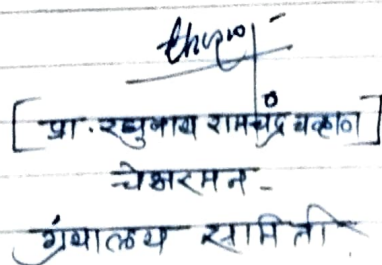 [प्रा. रघुनाथ रामचंद्र चव्हाण]
चेअरमन -
ग्रंथालय समिती